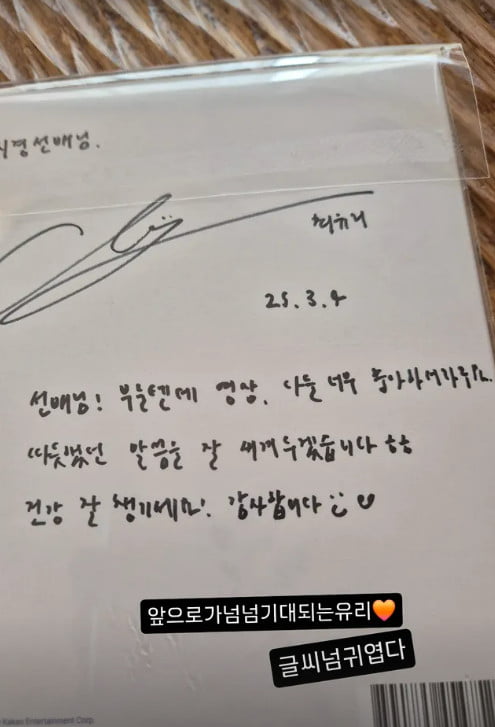 시경선배님.
최유리
25.3.4
선배님! 부를텐데 영상, 다들 너무 좋아하셔가주고..
따뜻했던 말씀을 잘 새겨두겠습니다 ㅎㅎ
건강 잘 챙기세요! 감사합니다
앞으로가넘넘기대되는유리🧡
글씨넘귀엽다
Kakao Entertainment Corp.